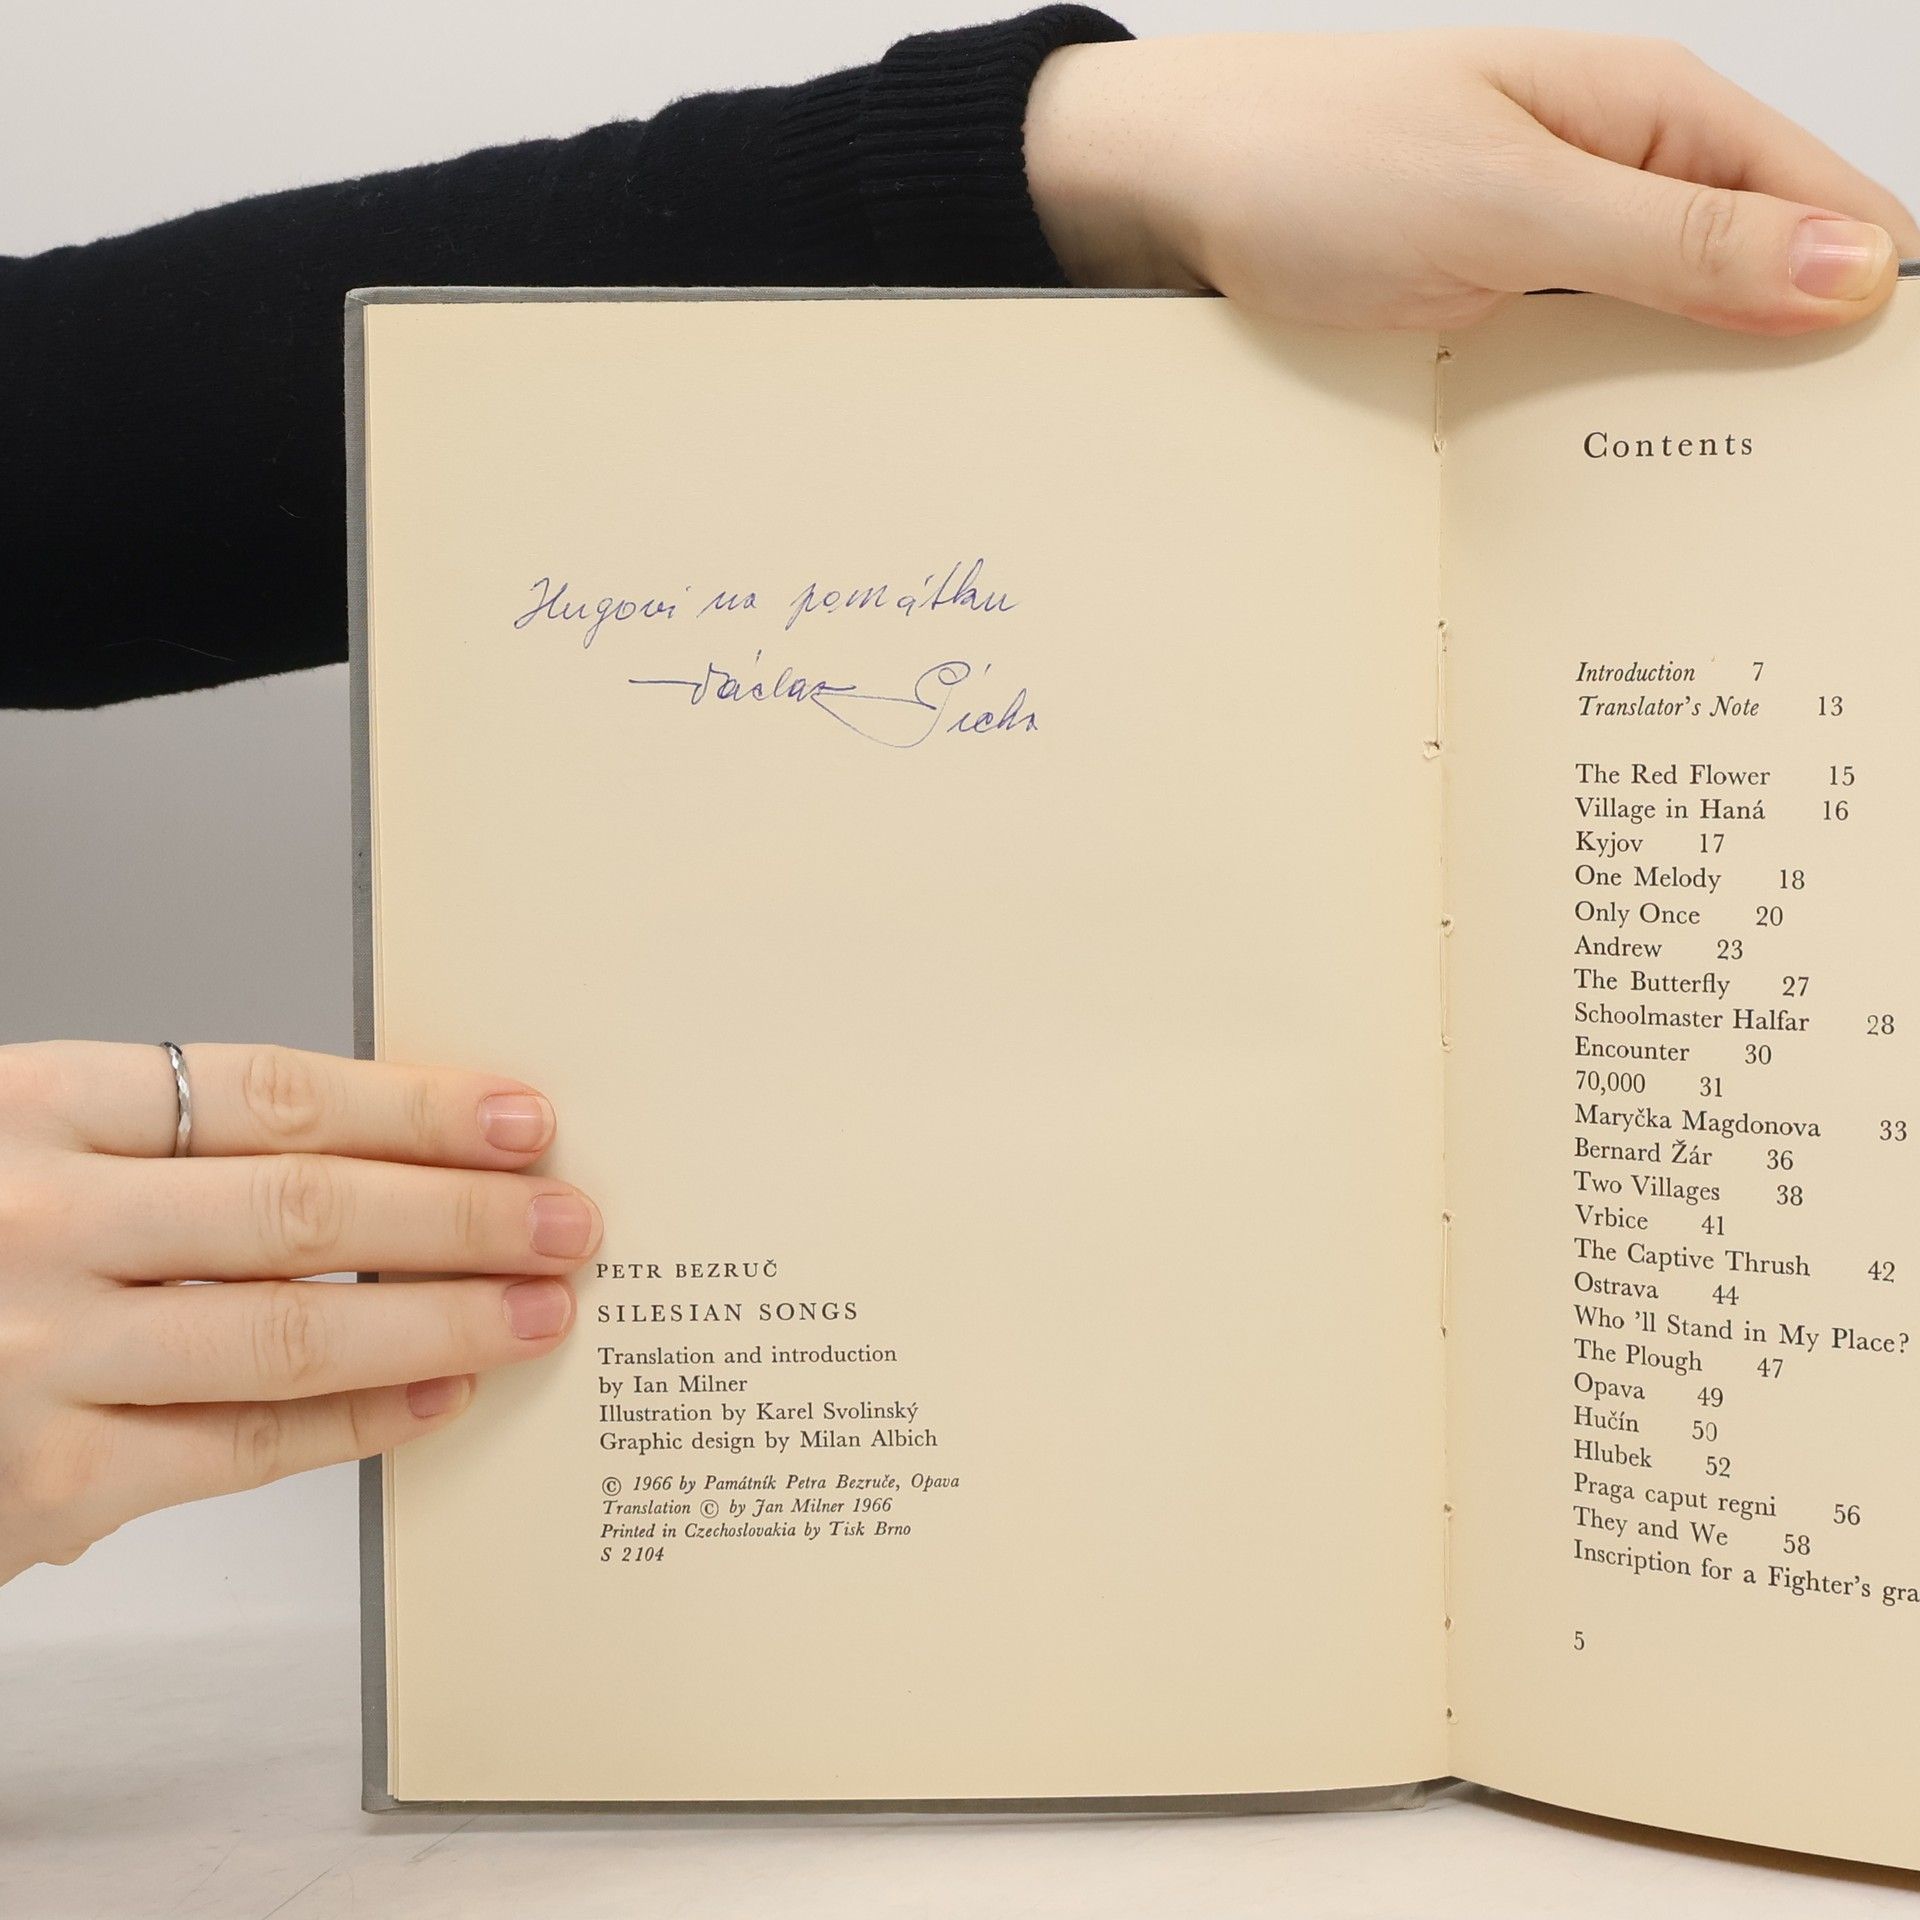 Hugovi na památku
Václav
PETR BEZRUČ
SILESIAN SONGS
Translation and introduction
by Ian Milner
Illustration by Karel Svolinský
Graphic design by Milan Albich
© 1966 by Památník Petra Bezruče, Opava
Translation © by Jan Milner 1966
Printed in Czechoslovakia by Tisk Brno
S 2104
Contents
Introduction 7
Translator's Note 13
The Red Flower 15
Village in Haná 16
Kyjov 17
One Melody 18
Only Once 20
Andrew 23
The Butterfly 27
Schoolmaster Halfar 28
Encounter 30
70,000 31
Maryčka Magdonova 33
Bernard Žár 36
Two Villages 38
Vrbice 41
The Captive Thrush 42
Ostrava 44
Who 'll Stand in My Place?
The Plough 47
Opava 49
Hučín 50
Hlubek 52
Praga caput regni 56
They and We 58
Inscription for a Fighter's gra
5